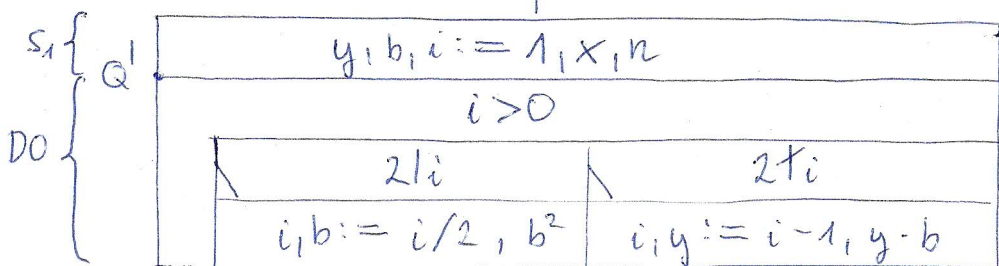 S₁ { Q' y, b, i := 1, x, n
DO { i > 0
2|i 2∤i
i, b := i/2, b² i, y := i-1, y·b